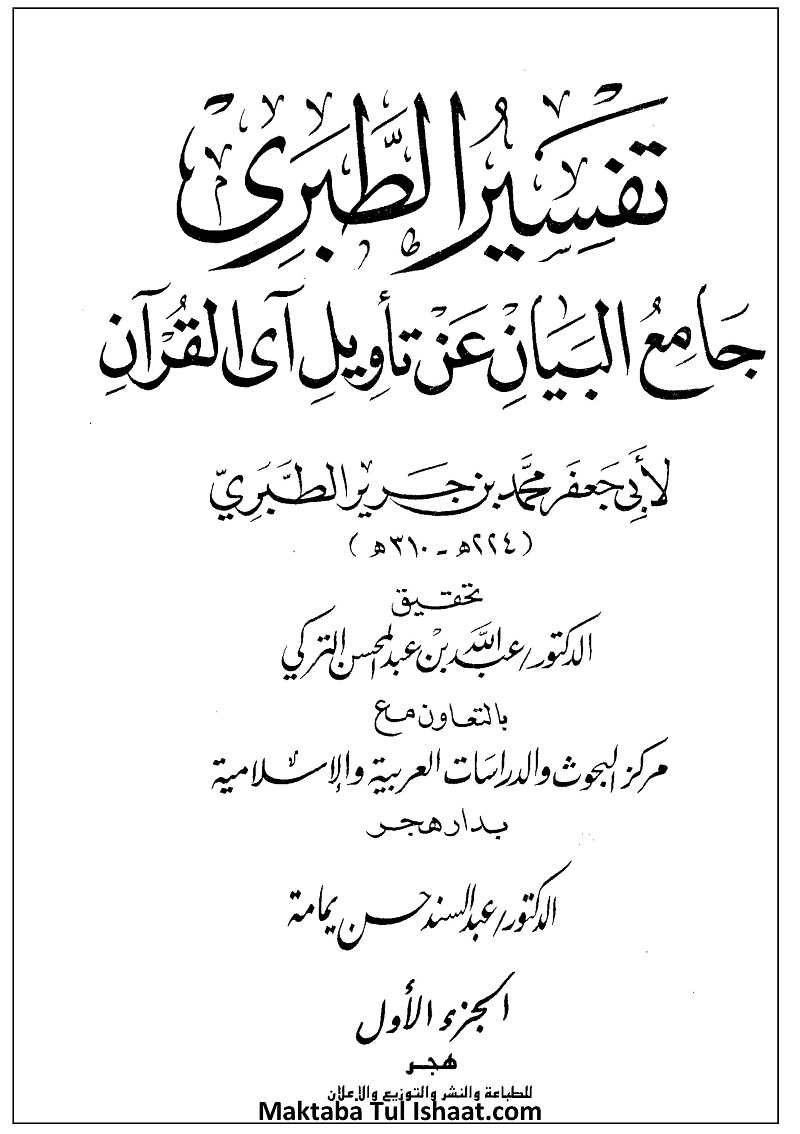 تفسير الطبري
جامع البيان عن تأويل آي القرآن
لأبي جعفر محمد بن جرير الطبري
(٢٢٤هـ - ٣١٠هـ)
تحقيق
الدكتور/عبد الله بن عبد المحسن التركي
بالتعاون مع
مركز البحوث والدراسات العربية والإسلامية
بدار هجر
الدكتور/عبد السند حسن يمامة
الجزء الأول
هجر
للطباعة والنشر والتوزيع والإعلان
Maktaba Tul Ishaat.com